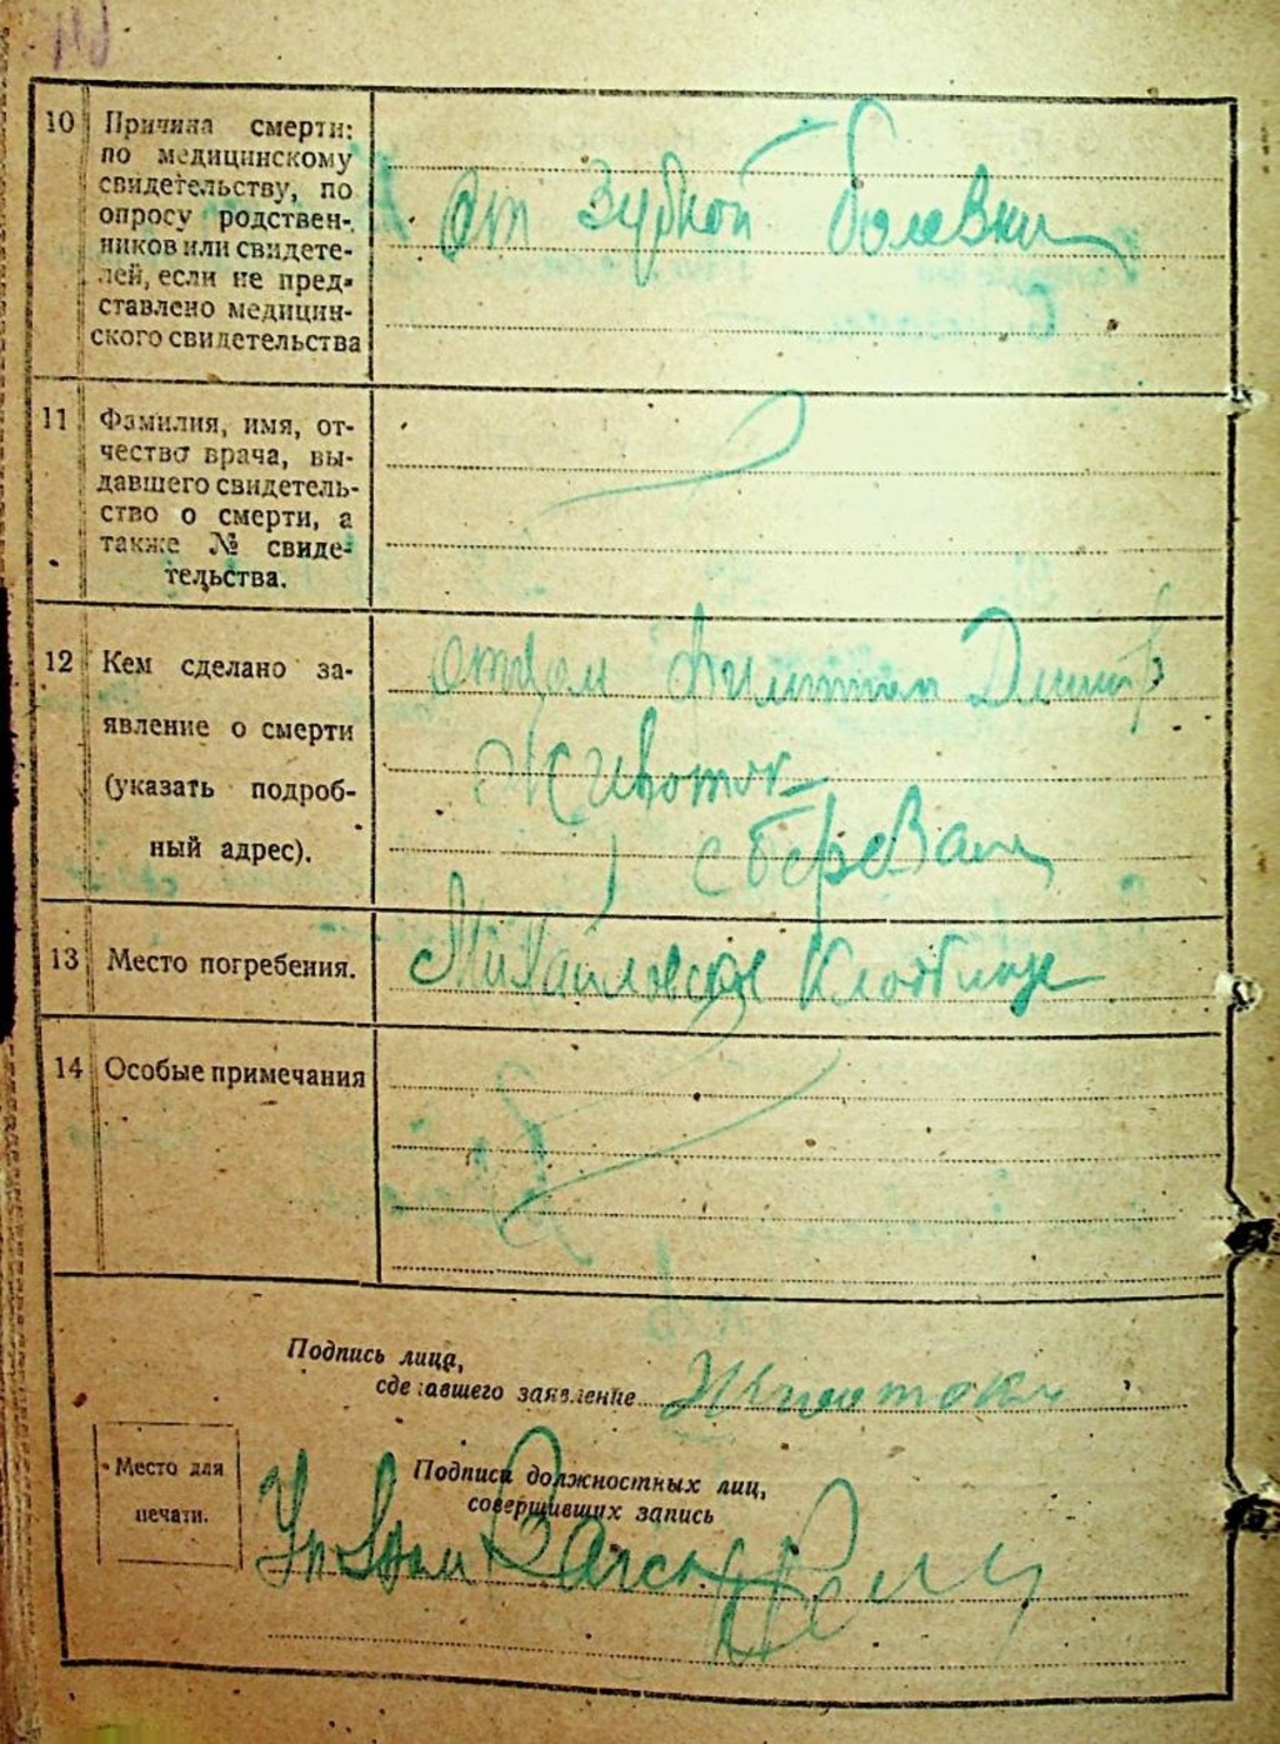 10 Причина смерти:
по медицинскому
свидетельству, по
опросу родствен-
ников или свидете-
лей, если не пред-
ставлено медицин-
ского свидетельства
От Зубной болезни
11 Фамилия, имя, от-
чество врача, вы-
давшего свидетель-
ство о смерти, а
также № свиде-
тельства.
12 Кем сделано за-
явление о смерти
(указать подроб-
ный адрес).
отцом Дмитр
Животок
с
13 Место погребения.
Михайловское Кладбище
14 Особые примечания
Подпись лица,
сделавшего заявление Животок
Место для
печати.
Подписи должностных лиц,
совершивших запись